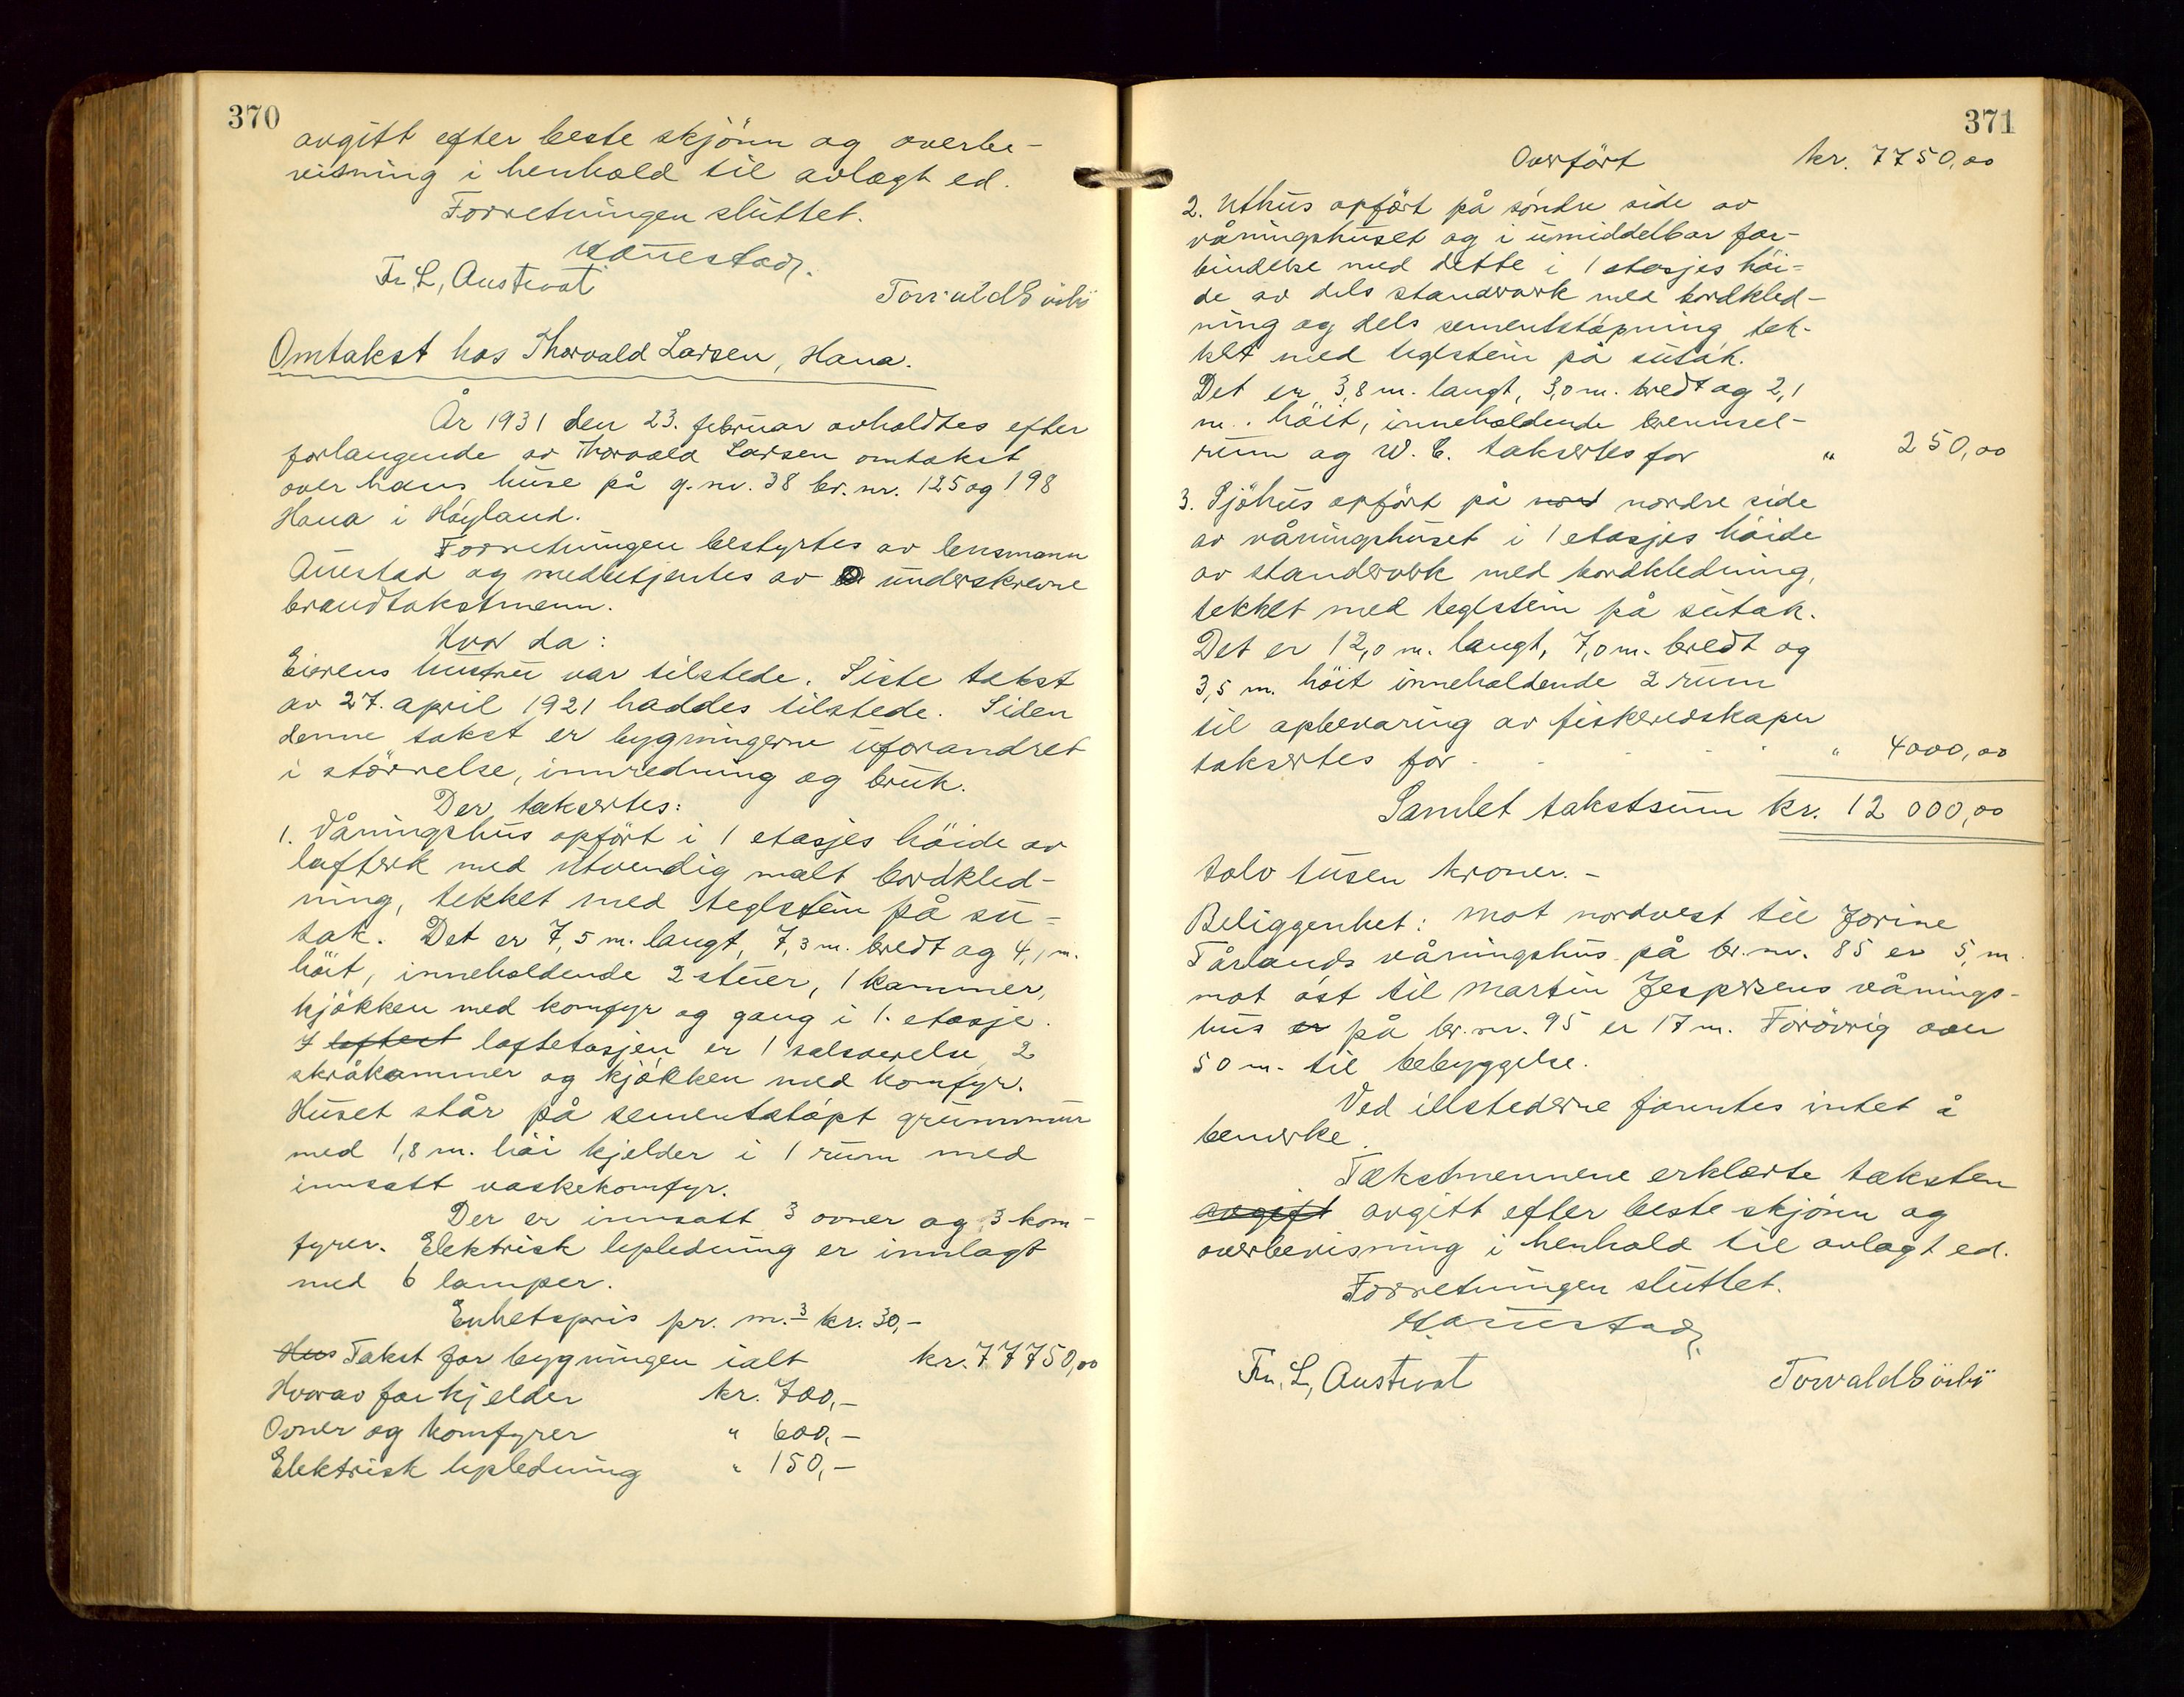 370
avgitt efter beste skjönn og overbe-
visning i henhold til avlagt ed.
Forretningen sluttet.
Auestad
Fr. L, Austrat
Torvald Eikeli
Omtakst hos Thorvald Larsen, Hana.
År 1931 den 23. februar avholdtes efter
forlangende av Thorvald Larsen omtakst
over hans huse på g.nr. 38 br. nr. 125 og 198
Hana i Höyland.
Forretningen bestyrtes av lensmann
Auestad og medbetjentes av underskrevne
brandtakstmenn.
Hvor da:
Eierens hustru var tilstede. Siste takst
av 27. april 1921 haddes tilstede. Siden
denne takst er bygningerne uforandret
i störrelse, innredning og bruk.
Der taksertes:
1. Våningshus opfört i 1 etasjes höide av
lafteverk med utvendig malt bordkled-
ning, tekket med teglstein på su-
tak. Det er 7,5 m. langt, 7,3 m. bredt og 4,1 m.
höit, inneholdende 2 stuer, 1 kammer,
kjökken med komfyr og gang i 1. etasje.
I loftest loftetasjen er 1 salsverelse, 2
skråkammer og kjökken med komfyr.
Huset står på sementstöpt grunnmur
med 1,8 m. höi kjelder i 1 rum med
innsatt vaskekomfyr.
Der er innsatt 3 ovner og 3 kom-
fyrer. Elektrisk lysledning er innlagt
med 6 lamper.
Enhetspris pr. m.3 kr. 30,-
Hus Takst for bygningen ialt kr. 77750,00
Hvorav for kjelder kr. 700,-
Ovner og komfyrer " 600,-
Elektrisk lysledning " 150,-
371
Overfört kr. 7750,00
2. Uthus opfört på söndre side av
våningshuset og i umiddelbar for-
bindelse med dette i 1 etasjes höi-
de av dels standverk med bordkled-
ning og dels sementstöpning tek-
ket med teglstein på sutak.
Det er 3,8 m. langt, 3,0 m. bredt og 2,1
m. höit, inneholdende brennsel-
rum og W. C. takseres for " 250,00
3. Sjöhus opfört på nord nordre side
av våningshuset i 1 etasjes höide
av standverk med bordkledning,
tekket med teglstein på sutak.
Det er 12,0 m. langt, 7,0 m. bredt og
3,5 m. höit inneholdende 2 rum
til opbevaring av fiskeredskaper
takseres for " 4000,00
Samlet takstsum kr. 12 000,00
tolv tusen kroner.-
Beliggenhet: mot nordvest til Jorine
Tårlands våningshus på br. nr. 85 er 5, m.
mot öst til Martin Jespersens vånings-
hus er på br. nr. 95 er 17 m. Forövrig over
50 m. til bebyggelse.
Ved illstederne fanntes intet å
bemerke.
Takstmennene erklærte taksten
avgift avgitt efter beste skjönn og
overbevisning i henhold til avlagt ed.
Forretningen sluttet.
Auestad
Fr. L, Austrat
Torvald Eikeli